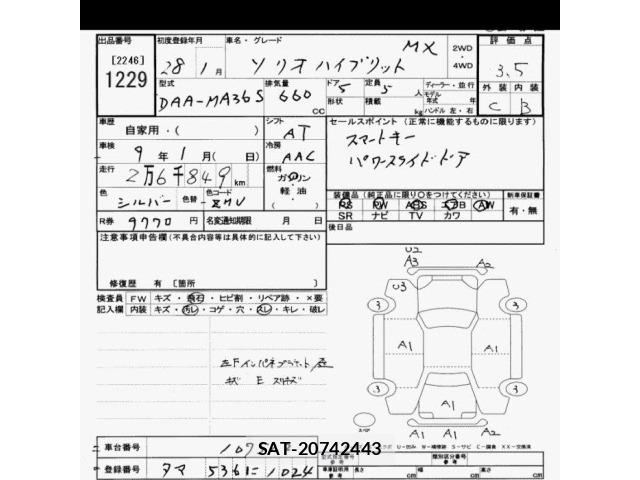 出品番号 初度登録年月 車名・グレード 評価点
[2246] 28年1月 ソリオハイブリット MX 2WD・4WD 3.5
1229 型式 排気量 ドア 5 定員 5人 ディーラー・並行 外装 内装
DAA-MA36S 660 cc 形状 積載 kg モデル年式 年式 ハンドル 左・右 C B
車歴 シフト セールスポイント (正常に機能するものに限ります)
自家用・( ) AT スマートキー
車検 9年1月(日) 冷房 AAC パワースライドドア
走行 2万6千849km 燃料 ガソリン・軽油・( )
色 シルバー 色替 色コード ZMU 装備品(純正品に限り○をつけてください) 新車保証書
PS PW ABS エアB AW 有・無
R券 9770円 名変通知期限 月 日 SR ナビ TV カワ
注意事項申告欄(不具合内容等は具体的に記入して下さい) 後日品
修復歴 有 [箇所 ]
検査員 FW キズ・飛石・ヒビ割・リペア跡・×要
記入欄 内装 キズ・汚レ・コゲ・穴・スレ・キレ・破レ
U2
A3
U3
3 3
A1 A1
3 3
A1
A1 A1
スペア
車台番号 107
SAT-20742443
登録番号 タマ 536 に 1024
型式指定番号 参考 類別区分番号 参考
車庫証明用 参考 長さ cm 幅 cm 高さ cm